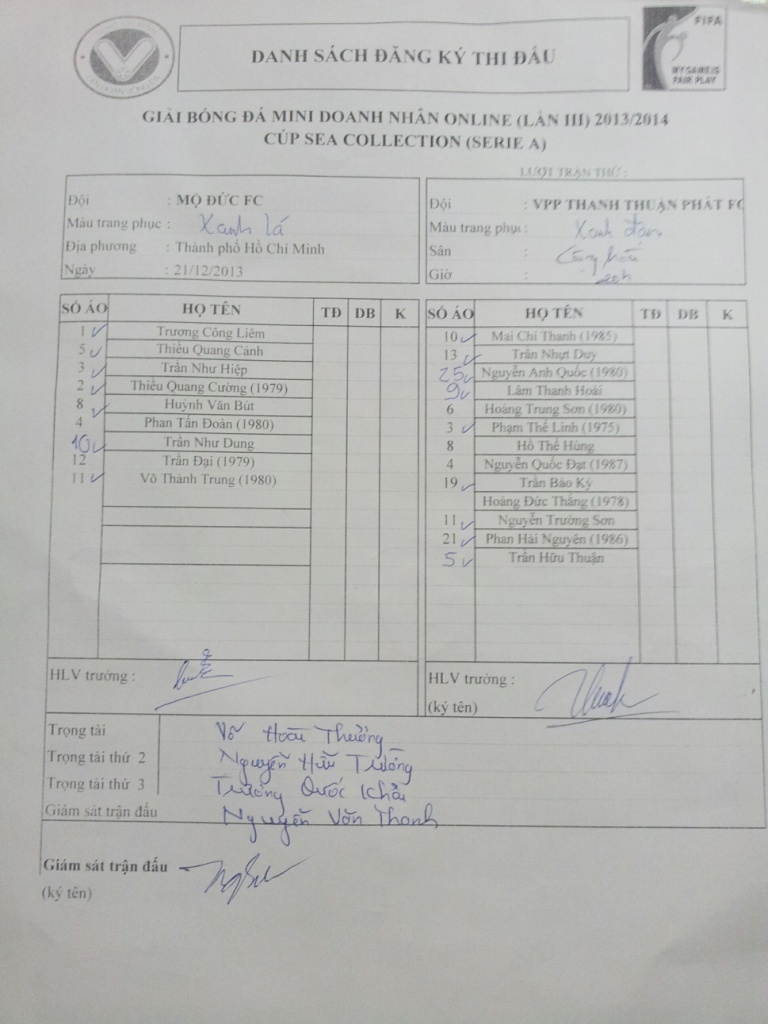 DANH SÁCH ĐĂNG KÝ THI ĐẤU
FIFA
MY GAME IS
FAIR PLAY
GIẢI BÓNG ĐÁ MINI DOANH NHÂN ONLINE (LẦN III) 2013/2014
CÚP SEA COLLECTION (SERIE A)
LƯỢT TRẬN THỨ :
Đội : MỘ ĐỨC FC
Màu trang phục : Xanh lá
Địa phương : Thành phố Hồ Chí Minh
Ngày : 21/12/2013
Đội : VPP THANH THUẬN PHÁT FC
Màu trang phục : Xanh
Sân :
Giờ : 20h
SỐ ÁO HỌ TÊN TĐ DB K
1 Trương Công Liêm
5 Thiều Quang Cảnh
3 Trần Như Hiệp
2 Thiều Quang Cường (1979)
8 Huỳnh Văn Bút
4 Phan Tấn Đoàn (1980)
10 Trần Như Dung
12 Trần Đại (1979)
11 Võ Thành Trung (1980)
SỐ ÁO HỌ TÊN TĐ DB K
10 Mai Chí Thanh (1985)
13 Trần Nhựt Duy
25 Nguyễn Anh Quốc (1980)
9 Lâm Thanh Hoài
6 Hoàng Trung Sơn (1980)
3 Phạm Thế Linh (1975)
8 Hồ Thế Hùng
4 Nguyễn Quốc Đạt (1987)
19 Trần Bảo Kỳ
Hoàng Đức Thắng (1978)
11 Nguyễn Trường Sơn
21 Phan Hải Nguyên (1986)
5 Trần Hữu Thuận
HLV trưởng :
HLV trưởng :
(ký tên)
Trọng tài Võ Hoài Thưởng
Trọng tài thứ 2 Nguyễn Hữu Trường
Trọng tài thứ 3 Trương Quốc Khải
Giám sát trận đấu Nguyễn Văn Thanh
Giám sát trận đấu
(ký tên)